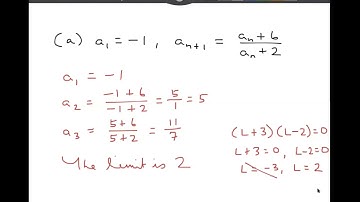 (a) a₁ = -1 , aₙ₊₁ = (aₙ + 6)/(aₙ + 2)
a₁ = -1
a₂ = (-1 + 6)/(-1 + 2) = 5/1 = 5
a₃ = (5 + 6)/(5 + 2) = 11/7
The limit is 2
(L + 3)(L - 2) = 0
L + 3 = 0, L - 2 = 0
L = -3, L = 2